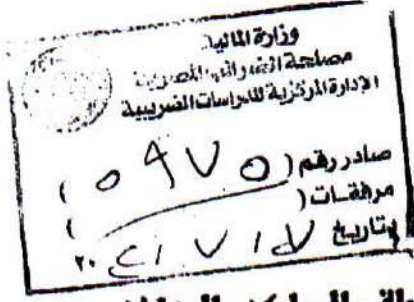 وزارة المالية
مصلحة الضرائب المصرية
الإدارة المركزية للدراسات الضريبية
صادر رقم ( ٥٩٧٥ )
مرفقات ( )
بتاريخ